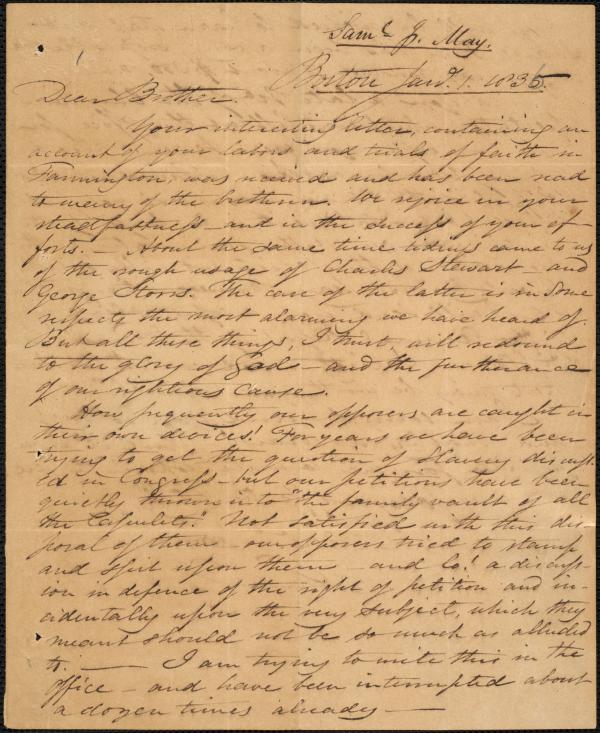 Saml J. May.
Boston Jany. 1. 1836.
Dear Brother.
Your interesting letter, containing an
account of your labors and trials of faith in
Farmington, was received and has been read
to many of the brethren. We rejoice in your
steadfastness - and in the success of your ef-
forts. - About the same time tidings came to us
of the rough usage of Charles Stewart - and
George Storrs. The case of the latter is in some
respects the most alarming we have heard of.
But all these things, I trust, will redound
to the glory of God - and the furtherance
of our righteous cause.
How frequently our opposers are caught in
their own devices! For years we have been
trying to get the question of Slavery discuss-
ed in Congress - but our petitions have been
quietly thrown into "the family vault of all
the Capulets." Not satisfied with this dis-
posal of them - our opposers tried to stamp
and spit upon them - and lo! a discuss-
ion in defence of the right of petition and in-
cidentally upon the very subject, which they
meant should not be so much as alluded
to. — I am trying to write this in the
office - and have been interrupted about
a dozen times already —